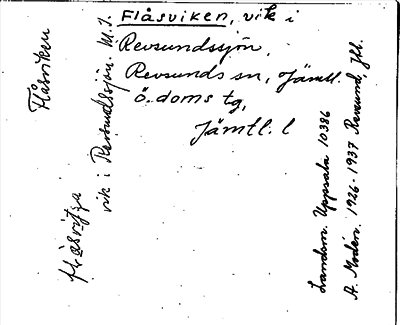 Flåsviken, vik i
Revsundssjön,
Revsunds sn, Jämtl.
ö. doms tg,
Jämtl. l
Flåsviken
flåsvitja
vik i Revsundssjön. M.J.
Landsm. Uppsala 10386
A. Modén. 1926-1937 Revsund, Jtl.